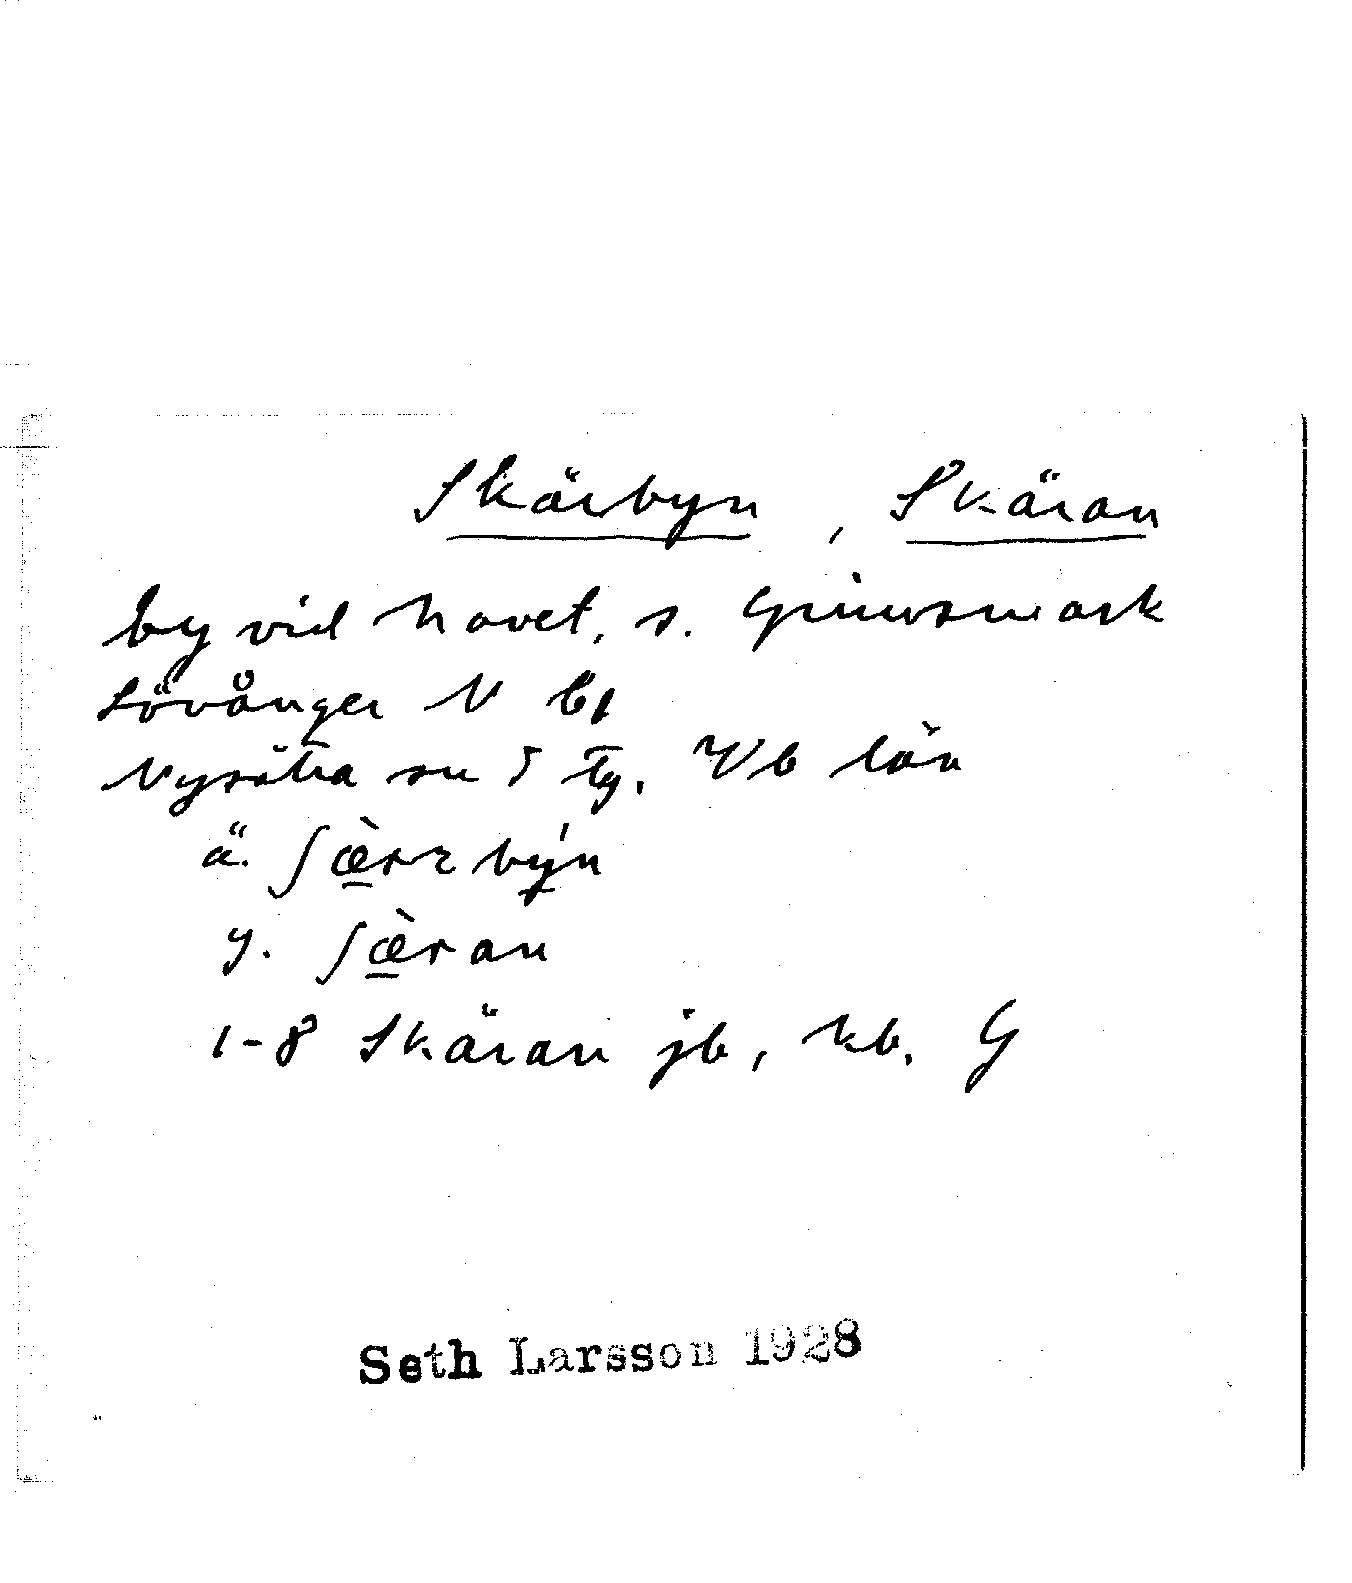 Skärbyn, Skäran
by vid havet, s. Grimsmark
Lövånger N b1
Nysätra sn S Tg. Vb län
ä. ʃæ̀rr býn
y. ʃæ̀ran
1-8 Skäran jb, kb. G
Seth Larsson 1928